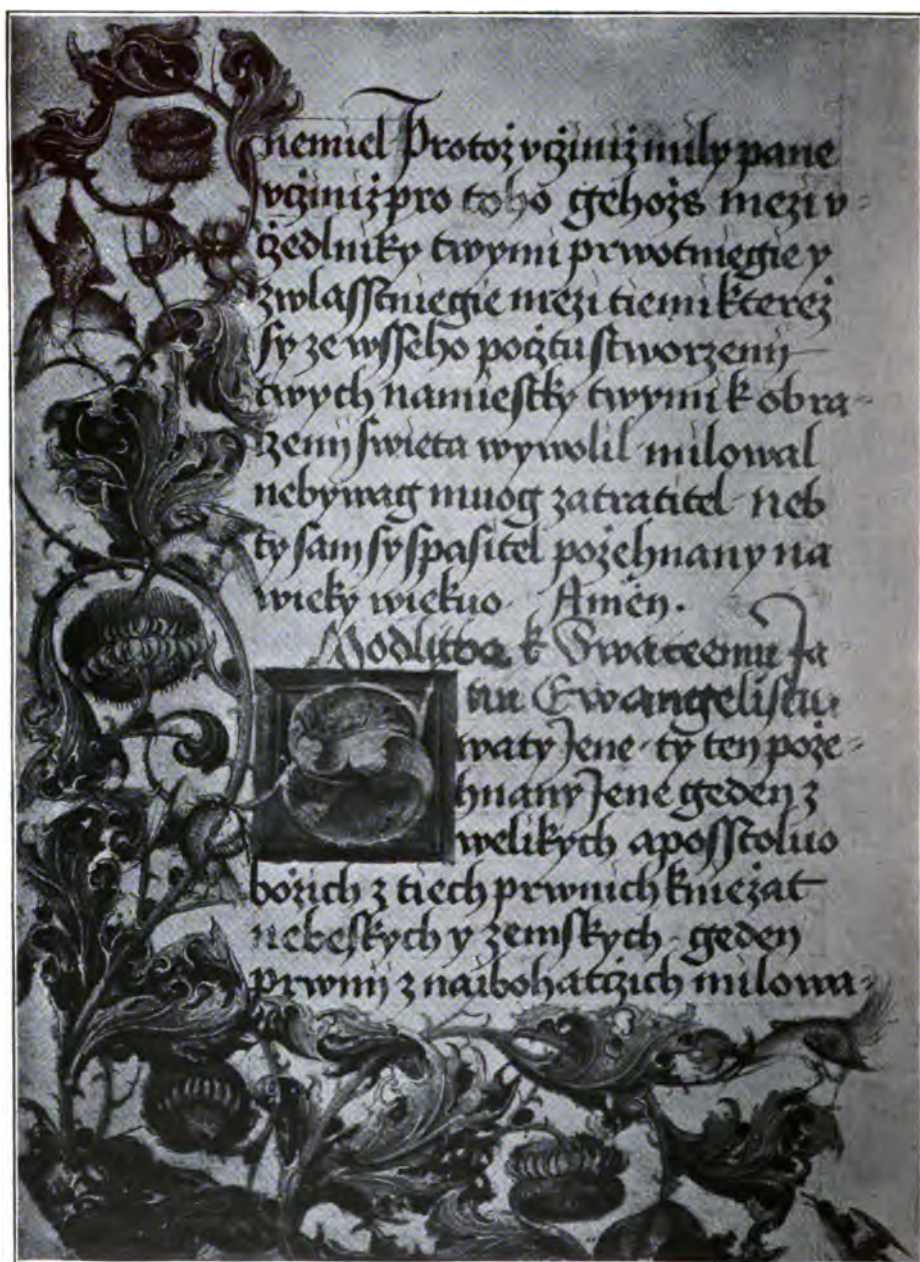 nemiel Protoż vcżiniż mily pane
vcżiniż pro toho gehożs mezi v-
żedlniky twymi prwotniegie y
zwlasstniegie mezi tiemi ktereż
sy ze wsseho pocżtu stworzenij
twych namiestky twymi k obra-
zenij swieta wywolil milowal
nebywag muog zatratitel neb
ty sam sy spasitel pożehnany na
wieky wiekuo. Amen.
Modlitba k Swateemu Ja-
nu Ewangelistu.
waty Jene ty ten poże-
hnany Jene geden z
welikych aposstoluo
bożich z tiech prwnich knieżat
nebeskych y zemskych geden
prwnij z naibohatcżich milowa-